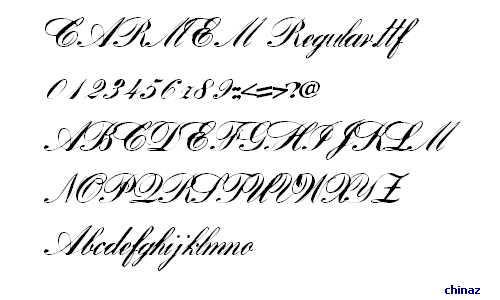 CARMEM Regular.ttf
0123456789:;<=>?@
ABCDEFGHIJKLM
NOPQRSTUVWXYZ
Abcdefghijklmno
chinaz